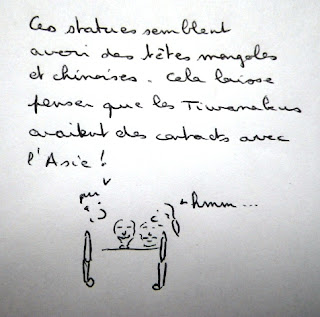 Ces statues semblent
avoir des têtes mongoles
et chinoises. Cela laisse
penser que les Tiwanakus
avaient des contacts avec
l'Asie !
hmm...